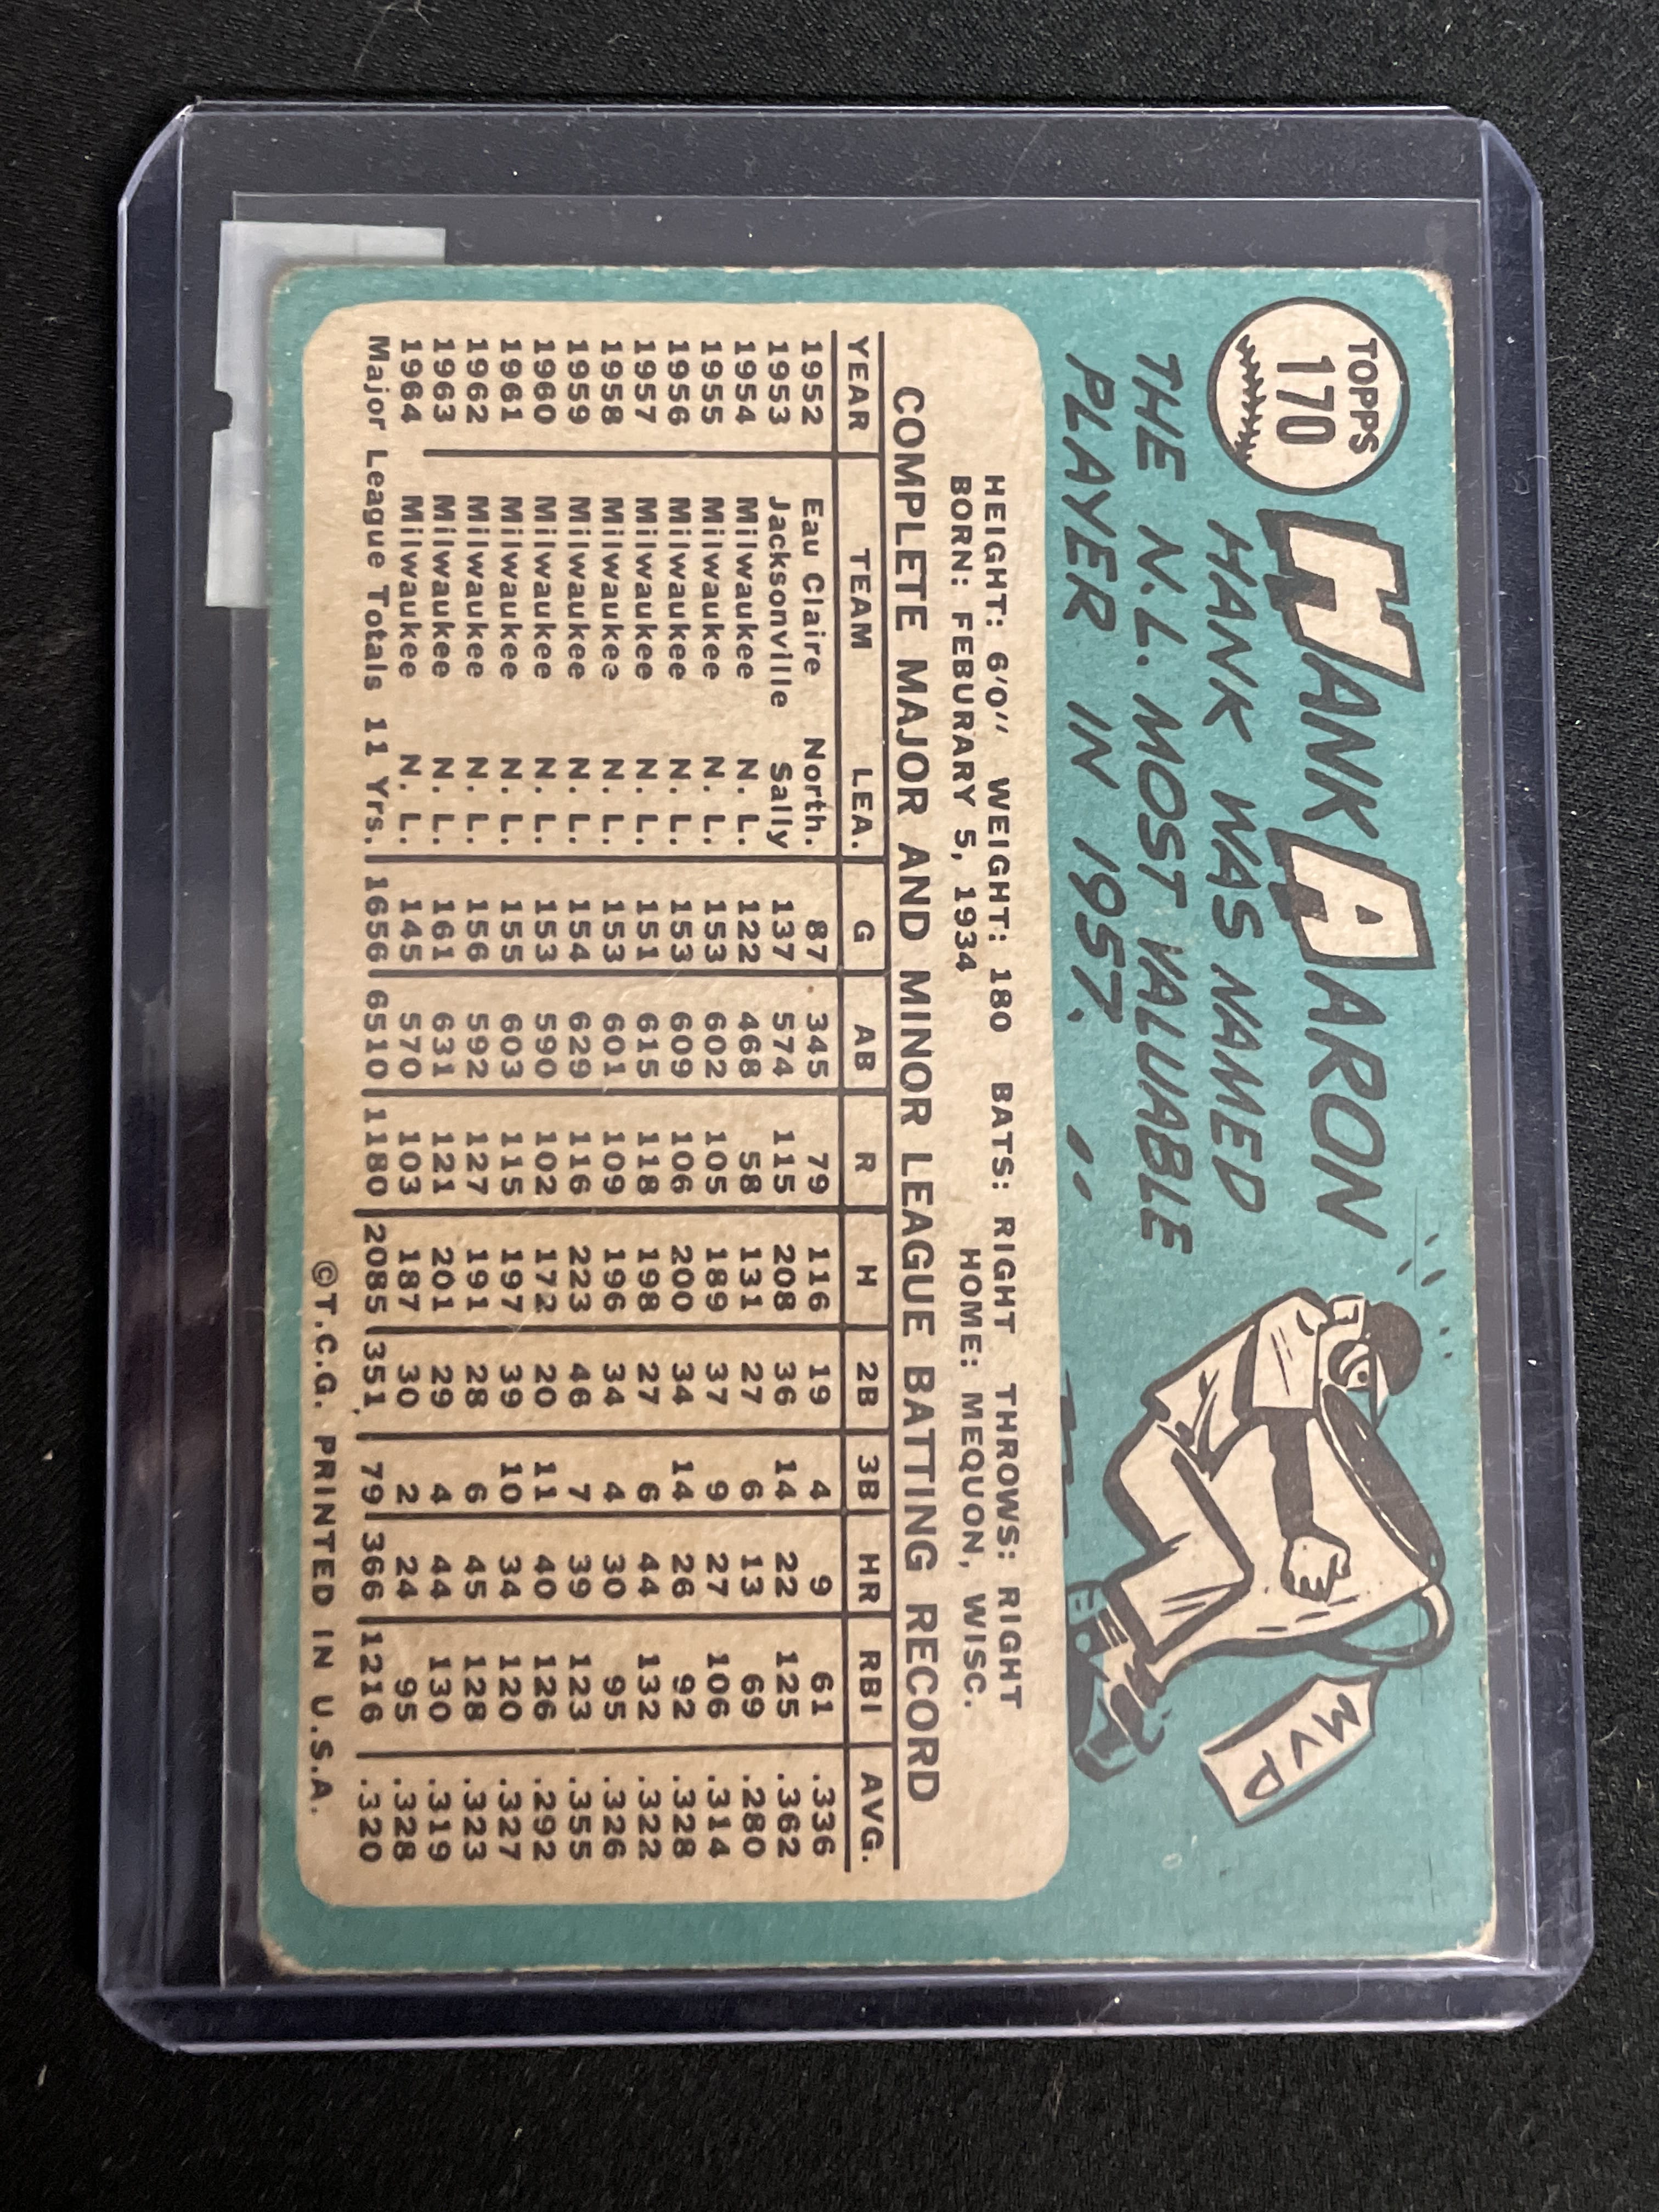 TOPPS
170
HANK AARON
HANK WAS NAMED
THE N.L. MOST VALUABLE
PLAYER IN 1957.
MVP
HEIGHT: 6'0" WEIGHT: 180 BATS: RIGHT THROWS: RIGHT
BORN: FEBURARY 5, 1934 HOME: MEQUON, WISC.
COMPLETE MAJOR AND MINOR LEAGUE BATTING RECORD
YEAR TEAM LEA. G AB R H 2B 3B HR RBI AVG.
1952 Eau Claire North. 87 345 79 116 19 4 9 61 .336
1953 Jacksonville Sally 137 574 115 208 36 14 22 125 .362
1954 Milwaukee N. L. 122 468 58 131 27 6 13 69 .280
1955 Milwaukee N. L. 153 602 105 189 37 9 27 106 .314
1956 Milwaukee N. L. 153 609 106 200 34 14 26 92 .328
1957 Milwaukee N. L. 151 615 118 198 27 6 44 132 .322
1958 Milwaukee N. L. 153 601 109 196 34 4 30 95 .326
1959 Milwaukee N. L. 154 629 116 223 46 7 39 123 .355
1960 Milwaukee N. L. 153 590 102 172 20 11 40 126 .292
1961 Milwaukee N. L. 155 603 115 197 39 10 34 120 .327
1962 Milwaukee N. L. 156 592 127 191 28 6 45 128 .323
1963 Milwaukee N. L. 161 631 121 201 29 4 44 130 .319
1964 Milwaukee N. L. 145 570 103 187 30 2 24 95 .328
Major League Totals 11 Yrs. 1656 6510 1180 2085 351 79 366 1216 .320
©T.C.G. PRINTED IN U.S.A.